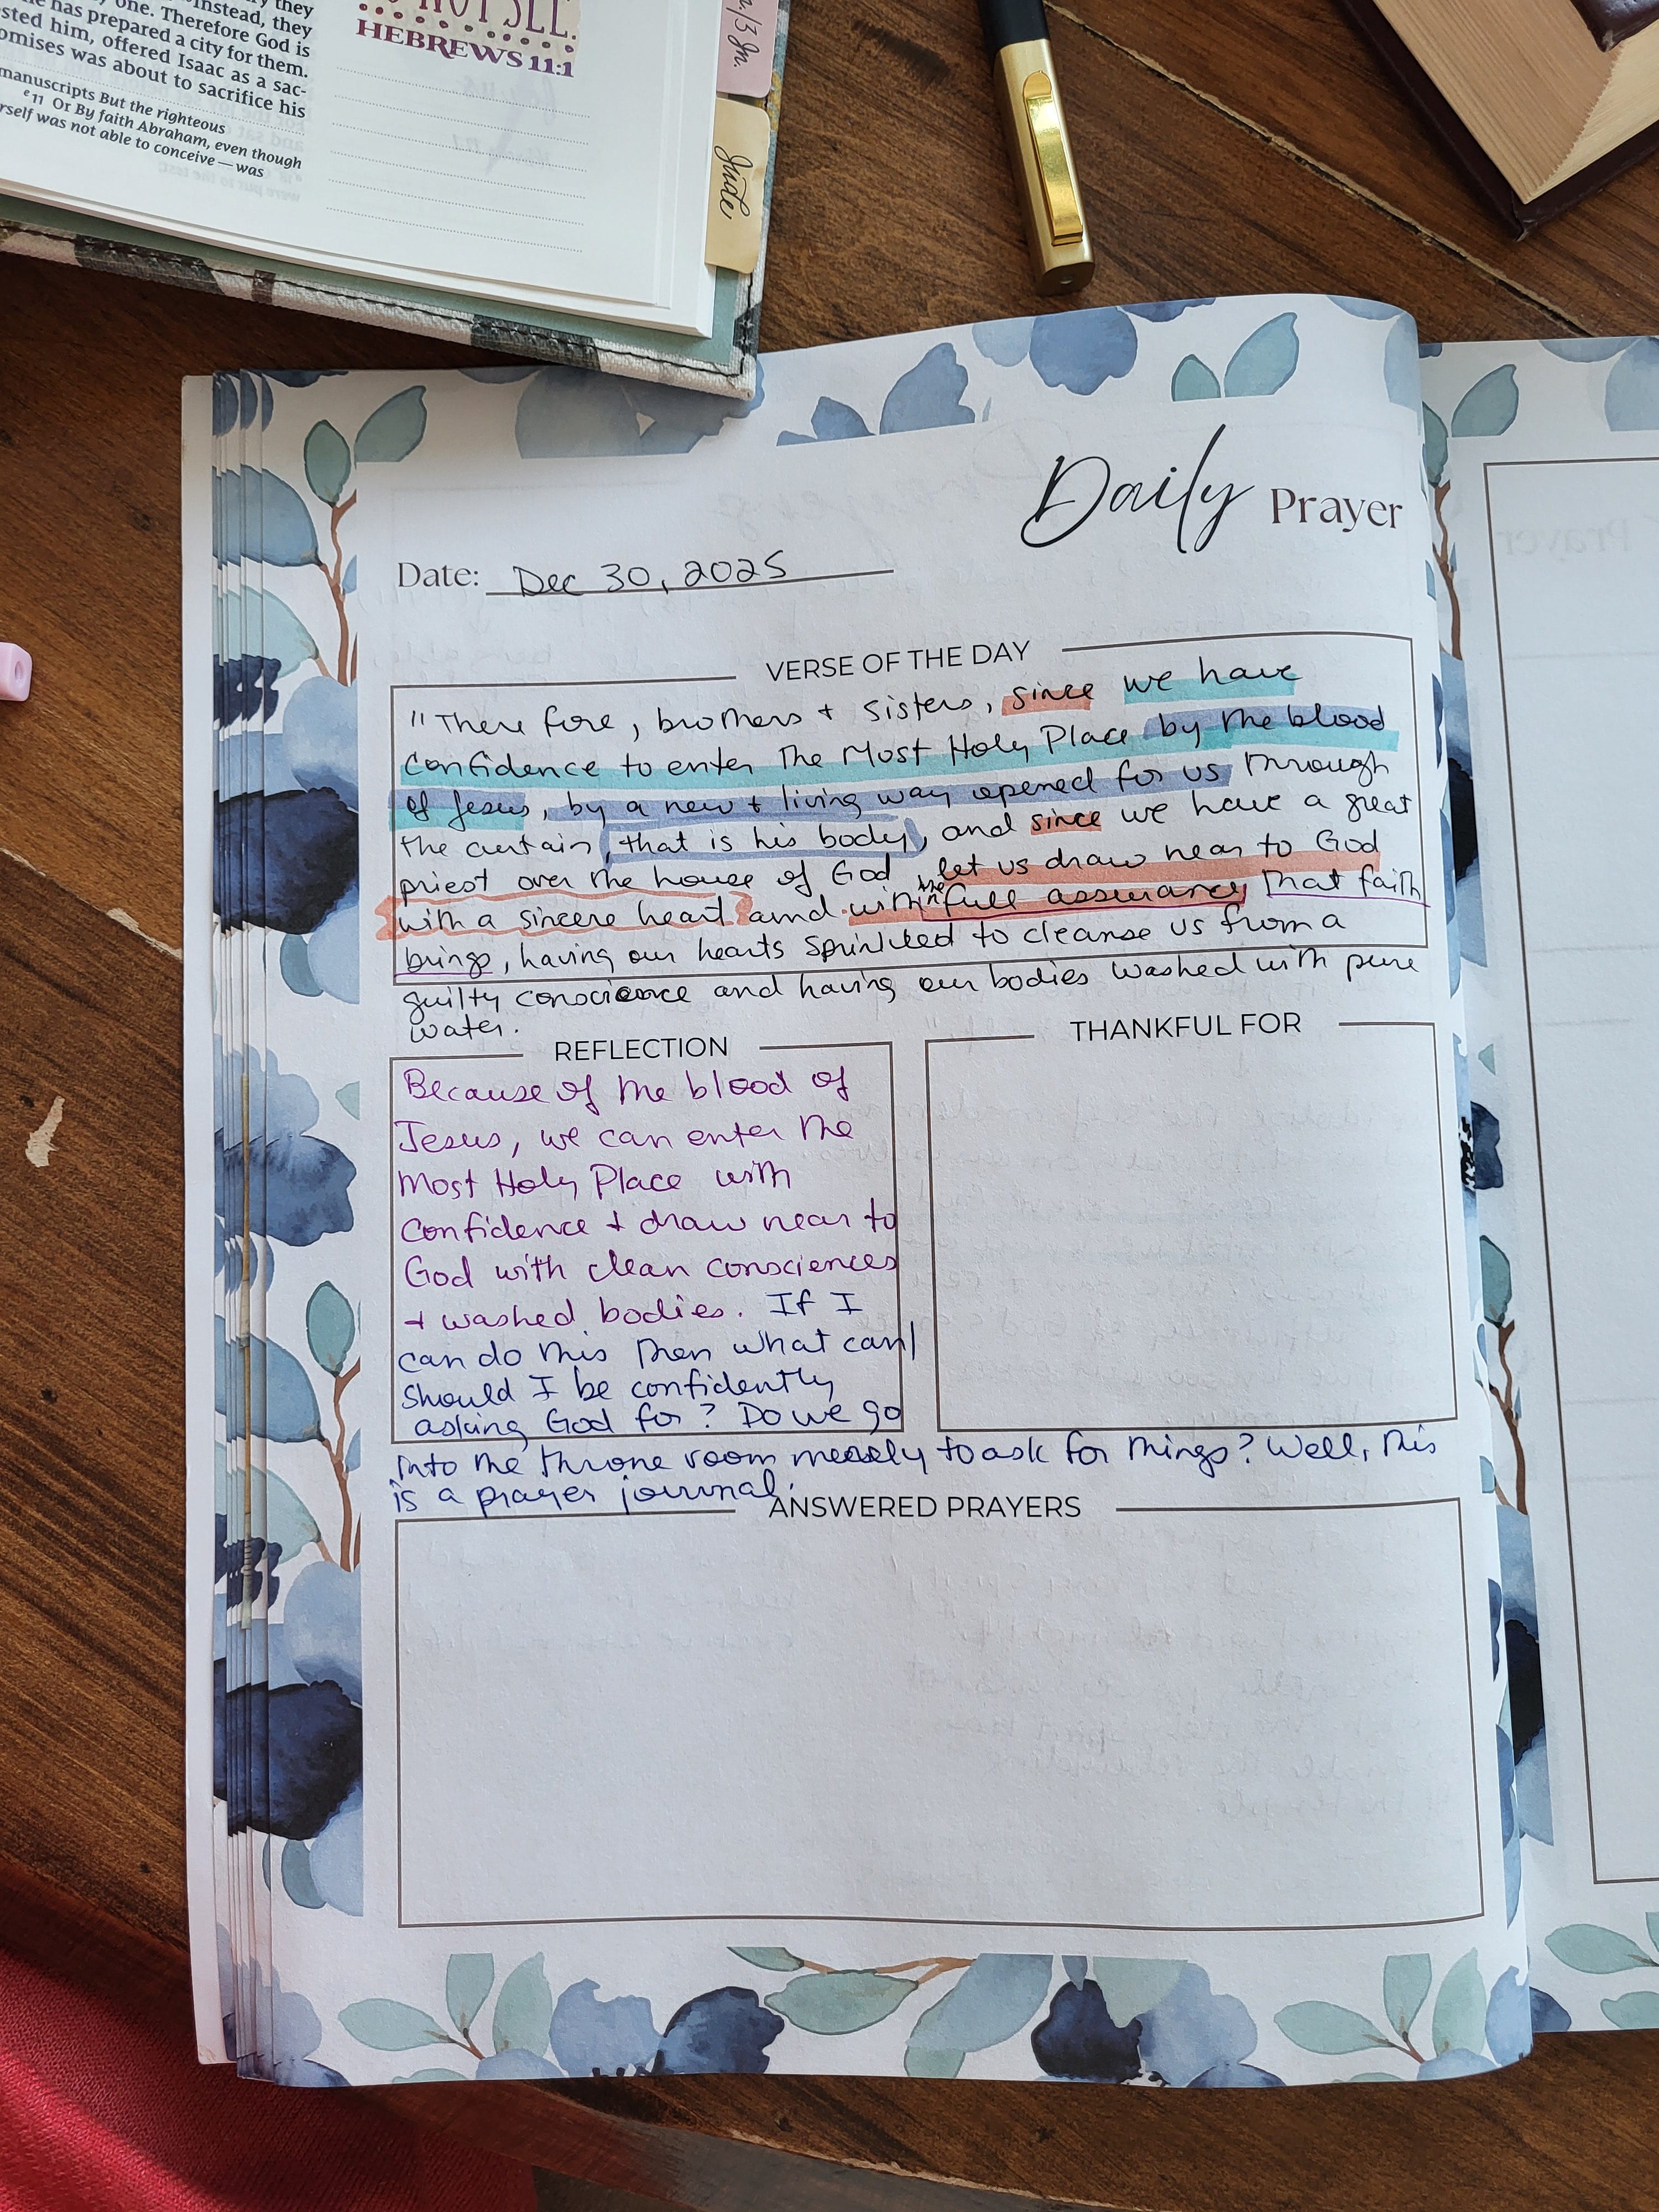 they
Instead, they
one. Therefore God is
he has prepared a city for them.
sted him, offered Isaac as a sac-
omises was about to sacrifice his
manuscripts But the righteous
e 11 Or By faith Abraham, even though
rself was not able to conceive — was
NOT SEE.
HEBREWS 11:1
/3 Jn.
Jude
Daily Prayer
Date: Dec 30, 2025
VERSE OF THE DAY
"There fore, brothers + sisters, since we have
confidence to enter the Most Holy Place by the blood
of Jesus, by a new + living way opened for us through
the curtain, that is his body, and since we have a great
priest over the house of God, let us draw near to God
with a sincere heart and with the full assurance that faith
brings, having our hearts sprinkled to cleanse us from a
guilty conscience and having our bodies washed with pure
water.
REFLECTION
Because of the blood of
Jesus, we can enter the
Most Holy Place with
confidence + draw near to
God with clean consciences
+ washed bodies. If I
can do this then what can/
should I be confidently
asking God for? Do we go
into the throne room merely to ask for things? Well, this
is a prayer journal.
THANKFUL FOR
ANSWERED PRAYERS